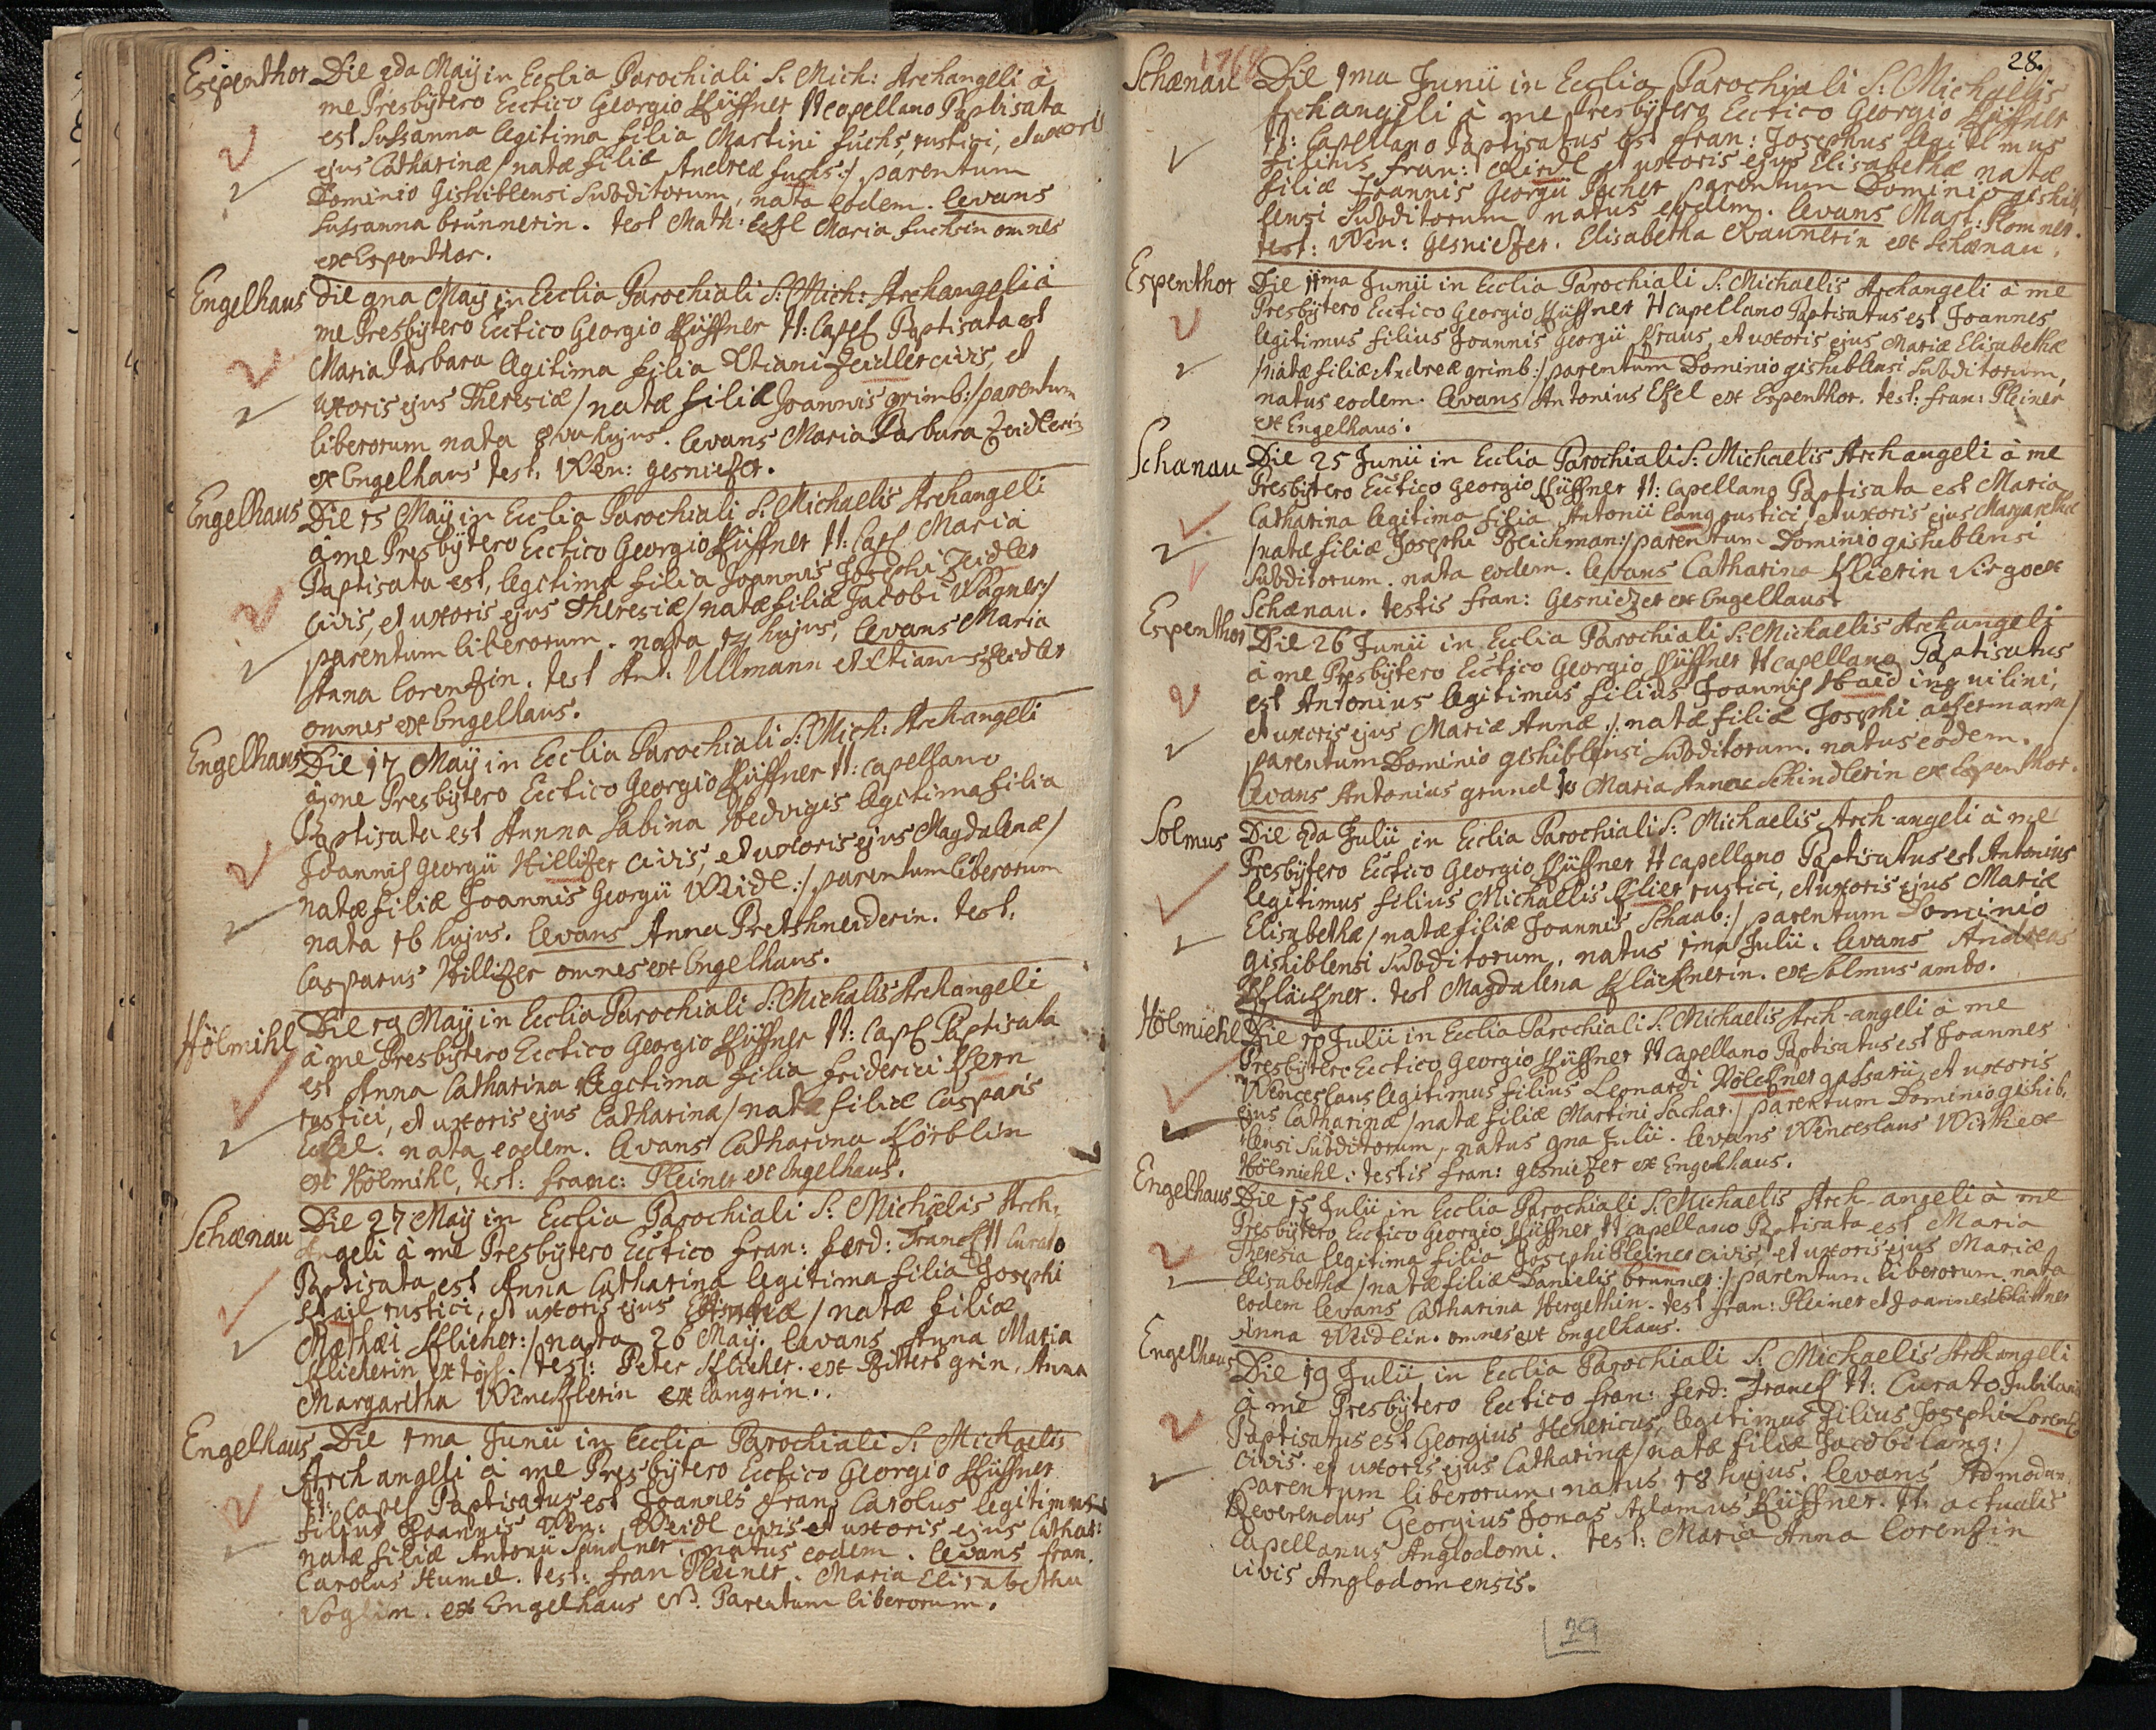 Espenthor Die 2da Maÿ in Ecclia Parochiali S: Mich: Archangeli à
me Presbÿtero Ecctico Georgio Küffner tt capellano Baptisata
est Sussanna legitima filia Martini fuchs, rustici, et uxoris
ejus Catharinæ /natæ filiæ Andreæ fuchs:/ parentum
Dominio Gishiblensi Subditorum, nata eodem. levans
Sussanna brunnerin. test Math: Eckl Maria fuchsin omnes
ex Espenthor.
Engelhaus Die 9na Maÿ in Ecclia Parochiali S: Mich: Archangeli à
me Presbÿtero Ecctico Georgio Küffner tt: Capel Baptisata est
Maria Barbara legitima filia Xtiani Zeidler civis, et
uxoris ejus Theresiæ /natæ filiæ Joannis grimb:/ parentum
liberorum nata 8va hujus. levans Maria Barbara Zeidlerin
ex Engelhaus test. Wen: gesnitzer.
Engelhaus Die 15 Maÿ in Ecclia Parochiali S: Michaelis Archangeli
à me Presbÿtero Ecctico Georgio Küffner tt: Cap Maria
Baptisata est, legitima filia Joannis Josephi Zeidler
Civis, et uxoris ejus Theresiæ /natæ filiæ Jacobi Wagner:/
parentum liberorum. nata 14 hujus, levans Maria
Anna Lorentzin. test Ant: Ullmann et Xtianus Zeidler
omnes ex Engelhaus.
Engelhaus Die 17 Maÿ in Ecclia Parochiali S: Mich: Archangeli
à me Presbÿtero Ecctico Georgio Küffner tt: Capellano
Baptisata est Annna Sabina Hedvigis legitima filia
Joannis Georgii Hillitzer civis, et uxoris ejus Magdalenæ /
natæ filiæ Joannis Georgii Weidl:/ parentum liberorum
nata 16 hujus. levans Anna Pretshneiderin. test.
Casparus Hillitzer omnes ex Engelhaus.
Hölmihl Die 19 Maÿ in Ecclia Parochiali S: Michalis Archangeli
à me Presbÿtero Ecctico Georgio Küffner tt: Cap Baptisata
est Anna Catharina legitima filia friderici Kern
rustici, et uxoris ejus Catharinæ /natæ filiæ Casparis
Eckel. nata eodem. levans Catharina Körblin
ex Hölmihl, test: franc: Pleiner ex Engelhaus.
Schænau Die 27 Maÿ in Ecclia Parochiali S: Michælis Arch-
Angeli à me Presbÿtero Ecctico fran: ferd: Franck tt Curato
Baptisata est Anna Catharina legitima filia Josephi
rustici, et uxoris ejus /natæ filiæ
Mathæi Klieher:/ nata 26 Maÿ. levans Anna Maria
Klieherin ex töp. / test: Peter Klieher. ex Rittersgrin, Anna
Margaretha Wenchlerin ex langrin.
Engelhaus Die 1ma Junii in Ecclia Parochiali S: Michaelis
Archangeli à me Presbÿtero Ecctico Georgio Küffner
tt: Capel Baptisatus est Joannes fran: Carolus legitimus
filius Joannis Wen: Weidl civis et uxoris ejus Cathar:
natæ filiæ Antonii Sandner, natus eodem. levans fran.
Carolus Humel. test: fran Pleiner. Maria Elisabetha
Voglin. ex Engelhaus NB. Parentum liberorum.
1768
28.
Schænau Die 1ma Junii in Ecclia Parochiali S: Michaelis
Archangeli à me Presbÿtero Ecctico Georgio Küffner
tt: Capellano Baptisatus est fran: Josephus legitimus
filius fran: et uxoris ejus Elisabethæ natæ
filiæ Joannis Georgii Pecher parentum Dominio gishib
lensi Subditorum natus eodem. levans Mart: Plomner.
test: Wen: Gesnietzer. Elisabetha ex Schænau.
Espenthor Die 11ma Junii in Ecclia Parochiali S: Michaelis Archangeli à me
Presbÿtero Ecctico Georgio Küffner tt capellano Baptisatus est Joannes
legitimus filius Joannis Georgii Kraus, et uxoris ejus Mariæ Elisabethæ
/natæ filiæ Andreæ grimb:/ parentum Dominio gishiblensi Subditorum,
natus eodem. levans Antonius Ekel ex Espenthor. test: fran: Pleiner
ex Engelhaus.
Schænau Die 25 Junii in Ecclia Parochiali S: Michaelis Archangeli à me
Presbÿtero Ecctico Georgio Küffner tt: Capellano Baptisata est Maria
Catharina legitima filia Antonii lang rustici, et uxoris ejus Margarethæ
/natæ filiæ Josephi Reichman:/ parentum Dominio gishiblensi
Subditorum. nata eodem. levans Catharina Klierin virgo ex
Schænau. testis fran: Gesnietzer ex Engelhaus.
Espenthor Die 26 Junii in Ecclia Parochiali S: Michaelis Archangeli
à me Presbÿtero Ecctico Georgio Küffner tt capellano Baptisatus
est Antonius legitimus filius Joannis Haid inquilini,
et uxoris ejus Mariæ Annæ /: natæ filiæ Josephi akermann/
parentum Dominio gishiblensi Subditorum. natus eodem.
levans Antonius grund Maria Anna Schindlerin ex Espenthor.
Solmus Die 2da Julii in Ecclia Parochiali S: Michaelis Arch-angeli à me
Presbÿtero Ecctico Georgio Küffner tt capellano Baptisatus est Antonius
legitimus filius Michaelis Klier rustici, et uxoris ejus Mariæ
Elisabethæ /natæ filiæ Joannis Schaab:/ parentum Dominio
gishiblensi Subditorum. natus 1ma Julii. levans Andreas
Klächner. test Magdalena Klächnerin. ex Solmus ambo.
Hölmiehl Die 10 Julii in Ecclia Parochiali S: Michaelis Arch-angeli à me
Presbÿtero Ecctico Georgio Küffner tt Capellano Baptisatus est Joannes
Wenceslaus legitimus filius Leonardi Hölchner gassarii, et uxoris
ejus Catharinæ /natæ filiæ Martini Sachar:/ parentum Dominio gishib.
lensi Subditorum, natus 9na Julii. levans Wenceslaus Wirth ex
Hölmiehl: testis fran: gesnietzer ex Engelhaus.
Engelhaus Die 15 Julii in Ecclia Parochiali S: Michaelis Arch-angeli à me
Presbÿtero Ecctico Georgio Küffner tt Capellano Batisata est Maria
Theresia legitima filia Josephi Pleiner civis, et uxoris ejus Mariæ
Elisabethæ /natæ filiæ Danielis brunner:/ parentum liberorum nata
eodem levans Catharina Hergethin. test fran: Pleiner et Joannes
Anna Weidlin. omnes ex Engelhaus.
Engelhaus Die 19 Julii in Ecclia Parochiali S: Michaelis Archangeli
à me Presbÿtero Ecctico fran: ferd: Franck tt: Curato Jubilario
Baptisatus est Georgius Henericus, legitimus filius Josephi Lorentz
civis. et uxoris ejus Catharinæ /natæ filiæ Jacobi lang:/
parentum liberorum, natus 18 hujus. levans Admodum
Reverendus Georgius Jonas Adamus Küffner. tt. actualis
Capellanus Anglodomi. test: Maria Anna Lorentzin
civis Anglodomensis.
29